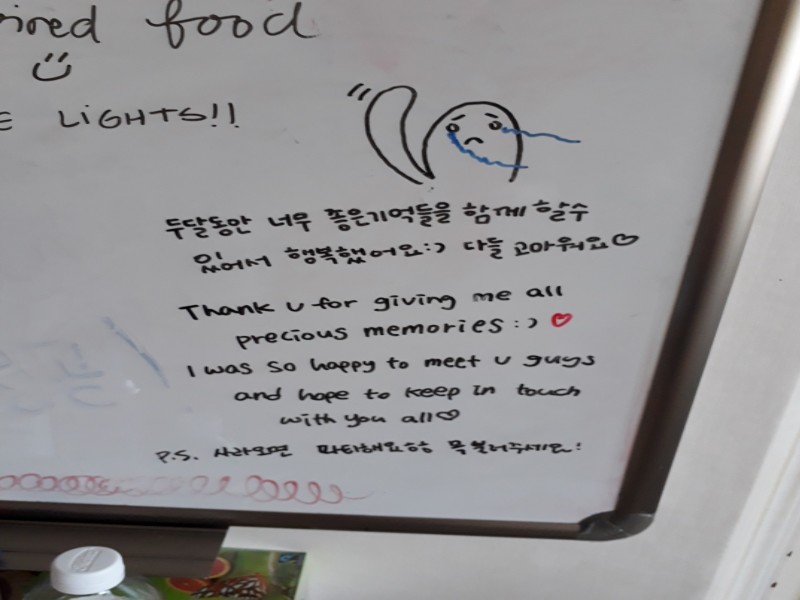 ired food
E LiGHTS!!
두달동안 너무 좋은기억들을 함께 할수
있어서 행복했어요:) 다들 고마워요♡
Thank u for giving me all
precious memories :) ♡
I was so happy to meet u guys
and hope to keep in touch
with you all♡
P.S. 파티해요